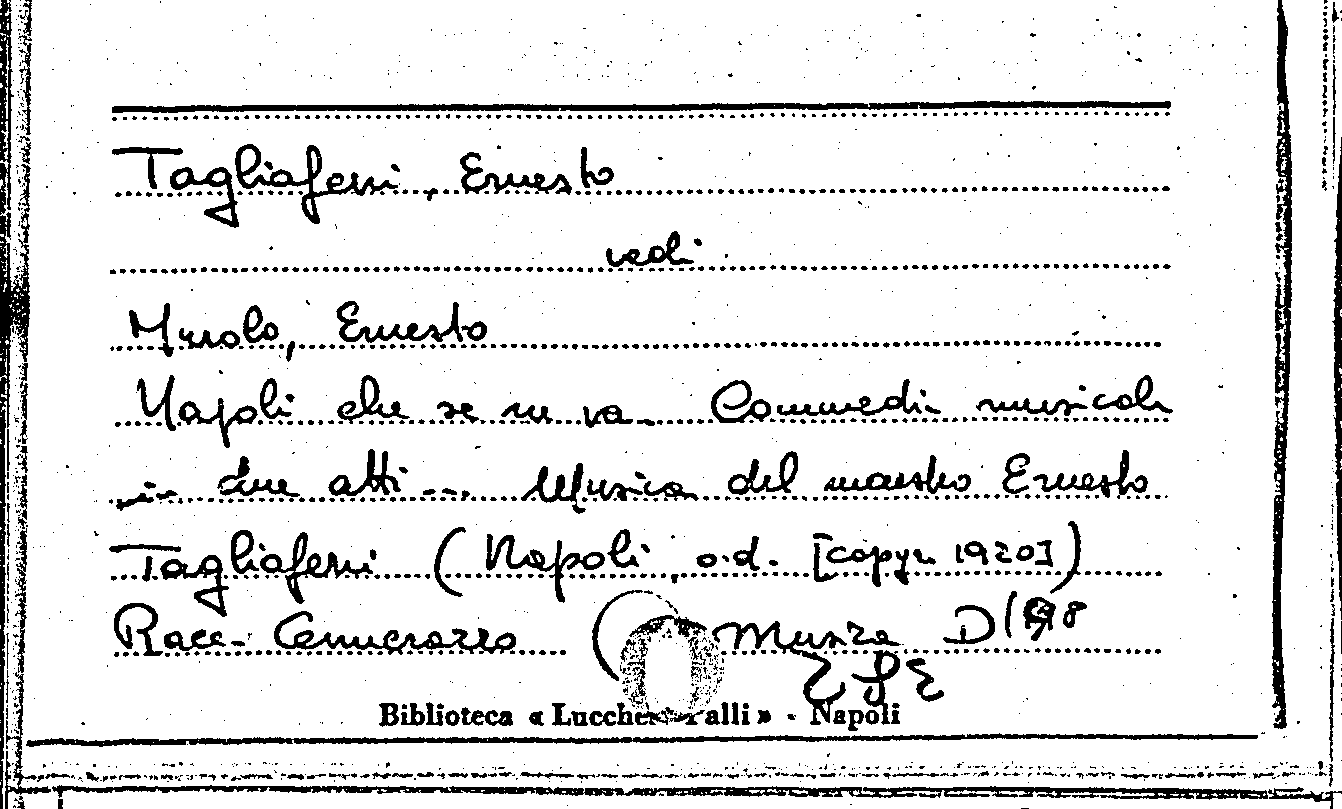 Tagliaferri, Ernesto
vedi
Murolo, Ernesto
Napoli che se ne va. Commedia musicale
in due atti ... Musica del maestro Ernesto
Tagliaferri (Napoli, s.d. [copyr. 1920])
Racc. Musica D
Biblioteca « Lucchesi Palli » - Napoli